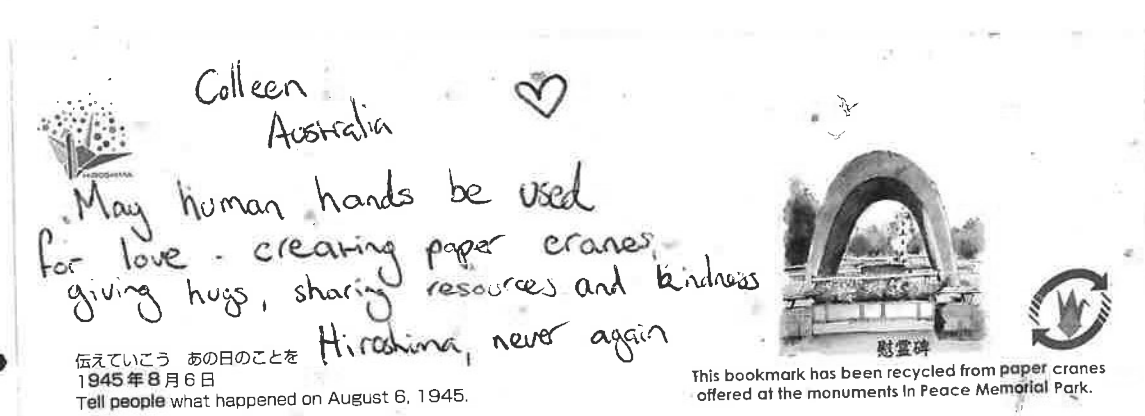 Colleen
Australia
HIROSHIMA
May human hands be used
for love - creating paper cranes,
giving hugs, sharing resources and kindness
Hiroshima, never again
伝えていこう あの日のことを
1945年8月6日
Tell people what happened on August 6, 1945.
慰霊碑
This bookmark has been recycled from paper cranes
offered at the monuments in Peace Memorial Park.